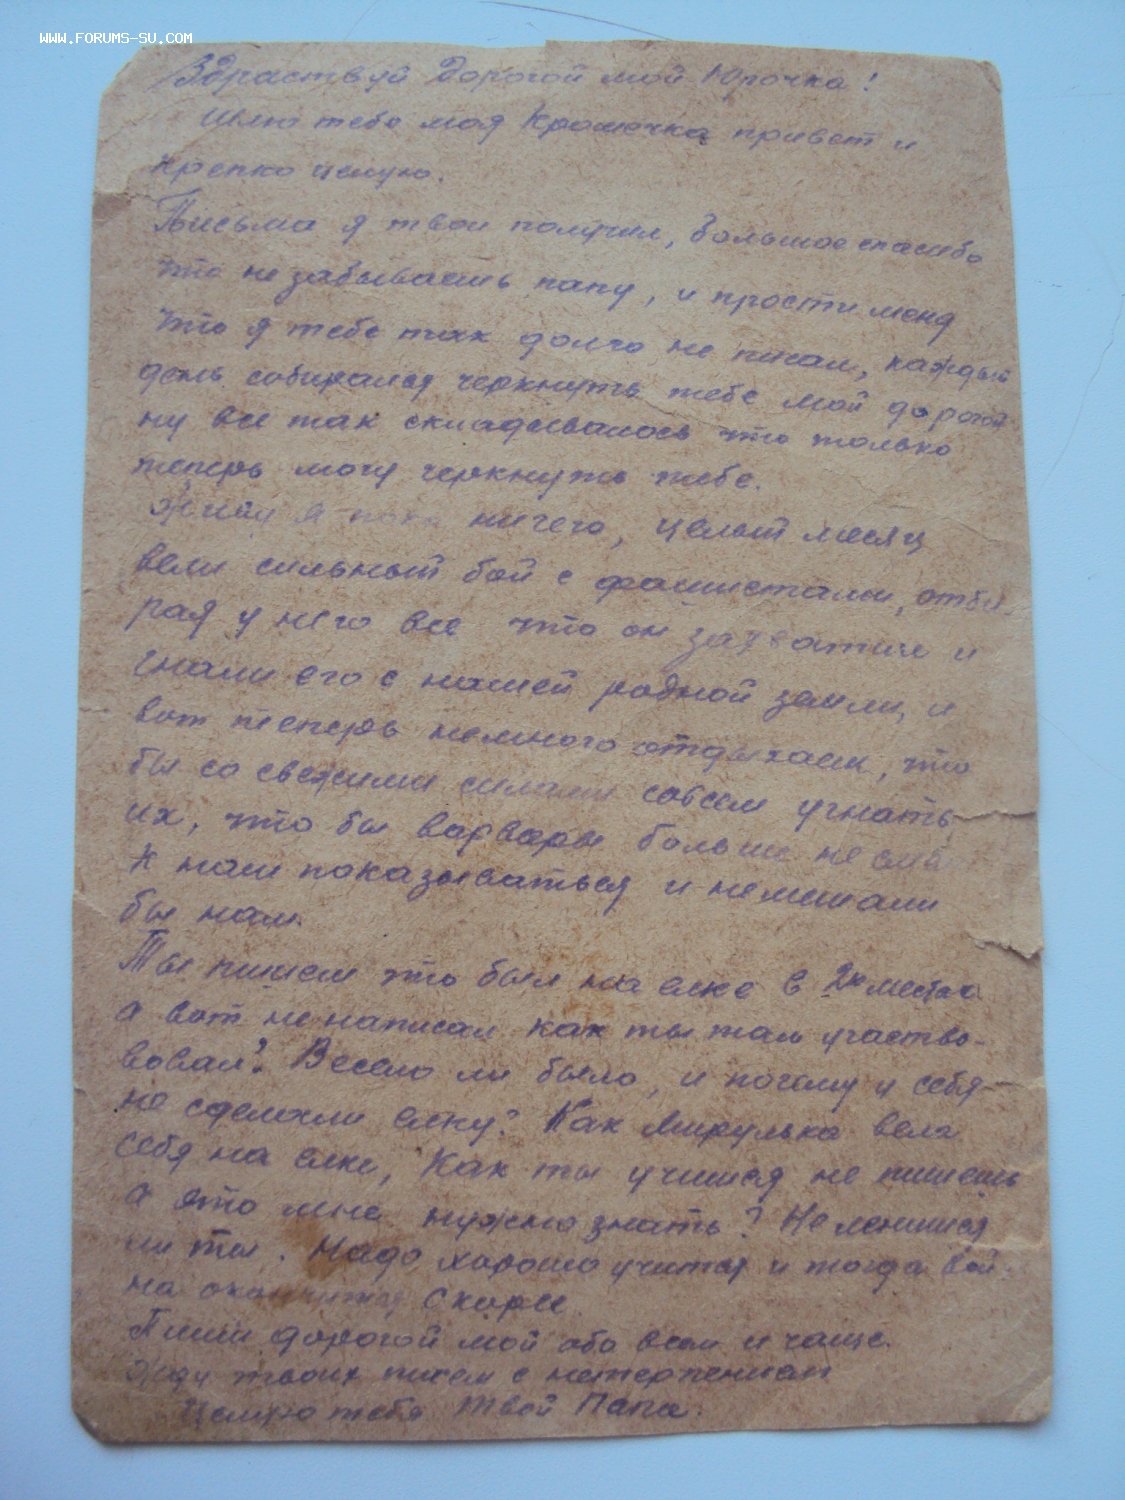 WWW.FORUMS-SU.COM
Здраствуй Дорогой мой Юрочка!
Шлю тебе моя Крошечка привет и
крепко целую.
Письма я твои получил, большое спасибо
что не забываешь папу, и прости меня
что я тебе так долго не писал, каждый
день собирался черкнуть тебе мой дорогой
ну все так складывалось что только
теперь могу черкнуть тебе.
Живу я пока ничего, целый месяц
вели сильный бой с фашистами, отби-
рая у него все что он захватил и
гнали его с нашей родной земли, и
вот теперь немного отдыхаем, что
бы со свежими силами совсем угнать
их, что бы варвары больше не
к нам показываться и не мешали
бы нам.
Ты пишеш что был на елке в
а вот не написал как ты там участво-
вовал? Весело ли было, и почему у себя
не сделали елку? Как Мирулька вела
себя на елке, Как ты учишся не пишешь
а ето мне нужно знать? Не ленишся
ли ты. Надо хорошо учится и тогда вой-
на окончится скорее.
Пиши дорогой мой обо всем и чаще.
Жду твоих писем с нетерпением
Целую тебя Твой Папа.